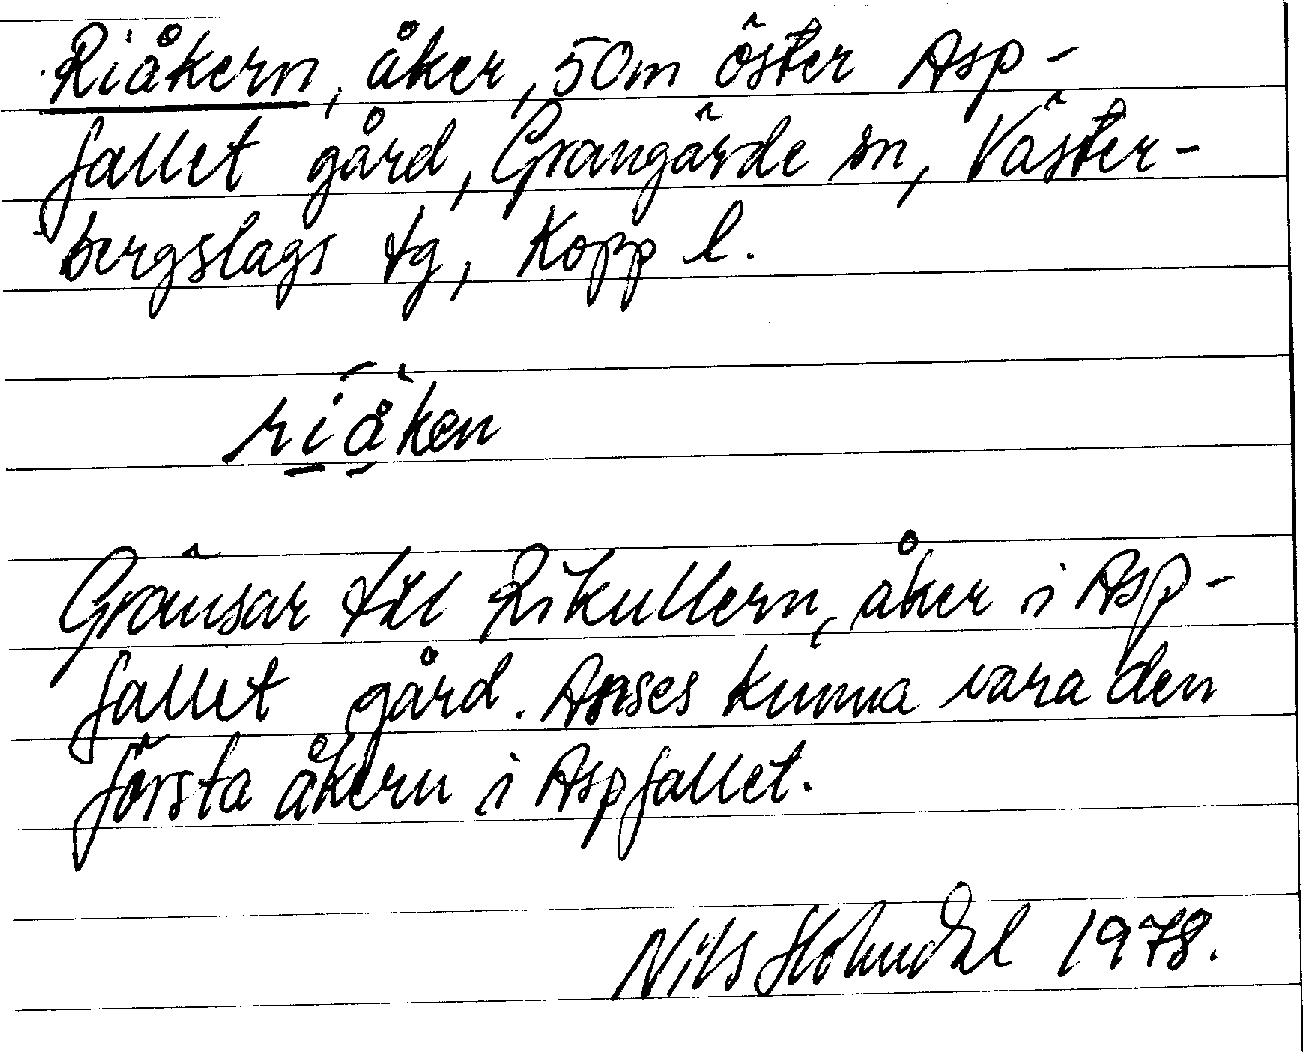 Riåkern, åker, 50m öster Asp-
fallet gård, Grangärde sn, Väster-
bergslags tg, Kopp l.
riåken
Gränsar till Rikullern, åker i Asp-
fallet gård. Anses kunna vara den
första åkern i Aspfallet.
Nils Holmdal 1978.